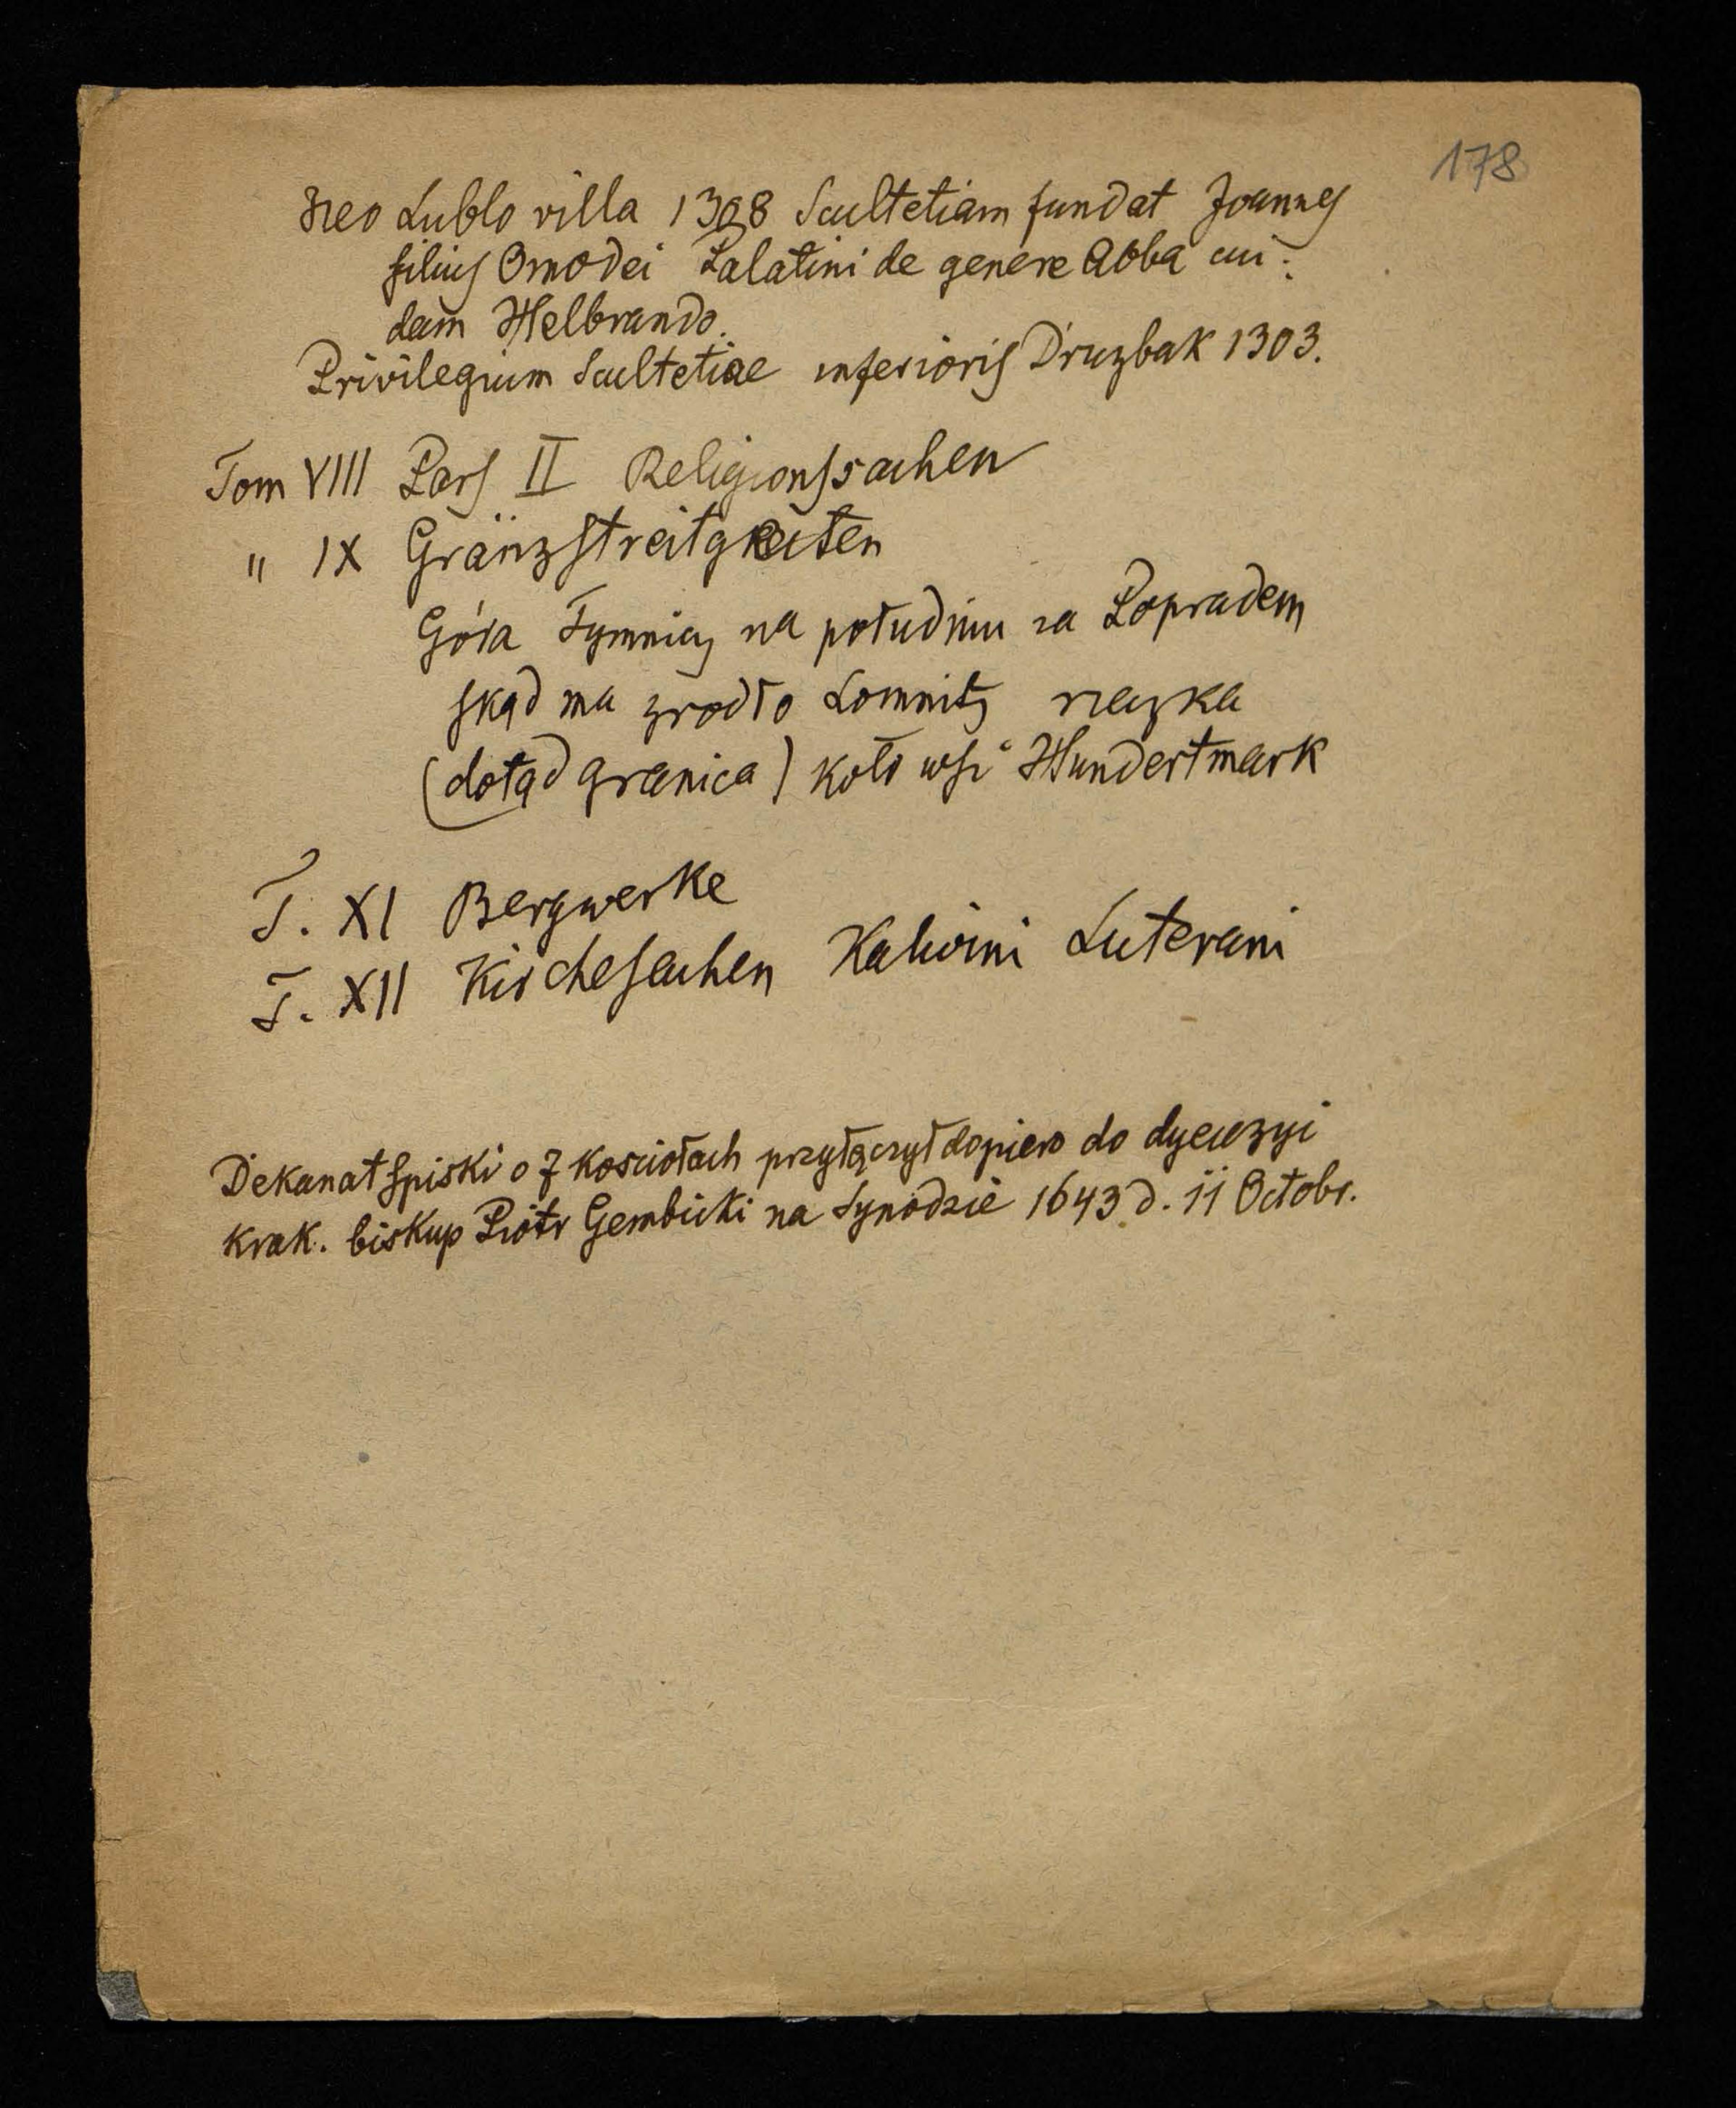 178
Neo Lublo villa 1308 Scultetiam fundat Joannes
filius Omodei Palatini de genere Abba cui-
dam Helbrando.
Privilegium Scultetiae inferioris Druzbak 1303.
Tom VIII Pars II Religionssachen
" IX Gränzstreitgkeiten
Góra Tymnicz na południu za Popradem
skąd ma zrodło Lomnitz rzeczka
(dotąd granica) koło wsi Hundertmark
T. XI Bergwerke
T. XII Kirchesachen Kalwini Luterani
Dekanat spiski o 7 kosciołach przyłączył dopiero do dyecezyi
krak. biskup Piotr Gembicki na Synodzie 1643 d. 11 Octobr.